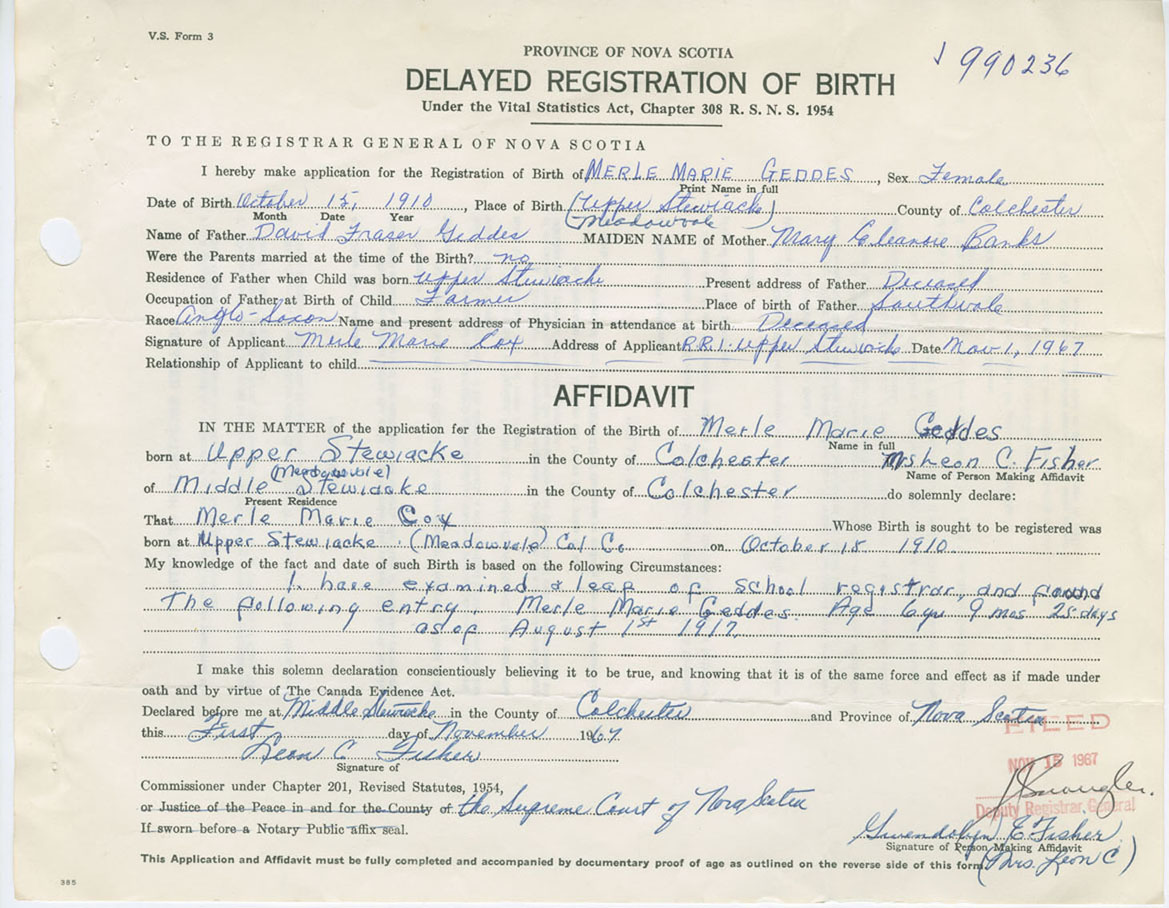 V.S. Form 3
PROVINCE OF NOVA SCOTIA
990236
DELAYED REGISTRATION OF BIRTH
Under the Vital Statistics Act, Chapter 308 R. S. N. S. 1954
TO THE REGISTRAR GENERAL OF NOVA SCOTIA
I hereby make application for the Registration of Birth of MERLE MARIE GEDDES, Sex Female
Print Name in full
Date of Birth October 15, 1910, Place of Birth (Upper Stewiacke) County of Colchester
Month Date Year (Meadowvale
Name of Father David Fraser Geddes MAIDEN NAME of Mother Mary Eleanore Banks
Were the Parents married at the time of the Birth? no
Residence of Father when Child was born Upper Stewiacke Present address of Father Deceased
Occupation of Father at Birth of Child Farmer Place of birth of Father Southvale
Race Anglo-Saxon Name and present address of Physician in attendance at birth Deceased
Signature of Applicant Merle Marie Cox Address of Applicant R.R.1. Upper Stewiacke Date Nov 1, 1967
Relationship of Applicant to child
AFFIDAVIT
IN THE MATTER of the application for the Registration of the Birth of Merle Marie Geddes
Name in full
born at Upper Stewiacke in the County of Colchester Mrs Leon C. Fisher
(Meadowvale) Name of Person Making Affidavit
of Middle Stewiacke in the County of Colchester do solemnly declare:
Present Residence
That Merle Marie Cox Whose Birth is sought to be registered was
born at Upper Stewiacke (Meadowvale) Col Co on October 15 1910
My knowledge of the fact and date of such Birth is based on the following Circumstances:
I have examined a leaf of school registrar, and found
The following entry. Merle Marie Geddes. Age 6 yr 9 mos 25 days
as of August 1st 1917.
I make this solemn declaration conscientiously believing it to be true, and knowing that it is of the same force and effect as if made under
oath and by virtue of The Canada Evidence Act.
Declared before me at Middle Stewiacke in the County of Colchester and Province of Nova Scotia
FILED
this First day of November 1967
Leon C. Fisher
NOV 15 1967
Signature of
Commissioner under Chapter 201, Revised Statutes, 1954,
or Justice of the Peace in and for the County of the Supreme Court of Nova Scotia
Deputy Registrar General
If sworn before a Notary Public affix seal.
Gwendolyn E. Fisher
Signature of Person Making Affidavit
This Application and Affidavit must be fully completed and accompanied by documentary proof of age as outlined on the reverse side of this form (Mrs. Leon C)
385